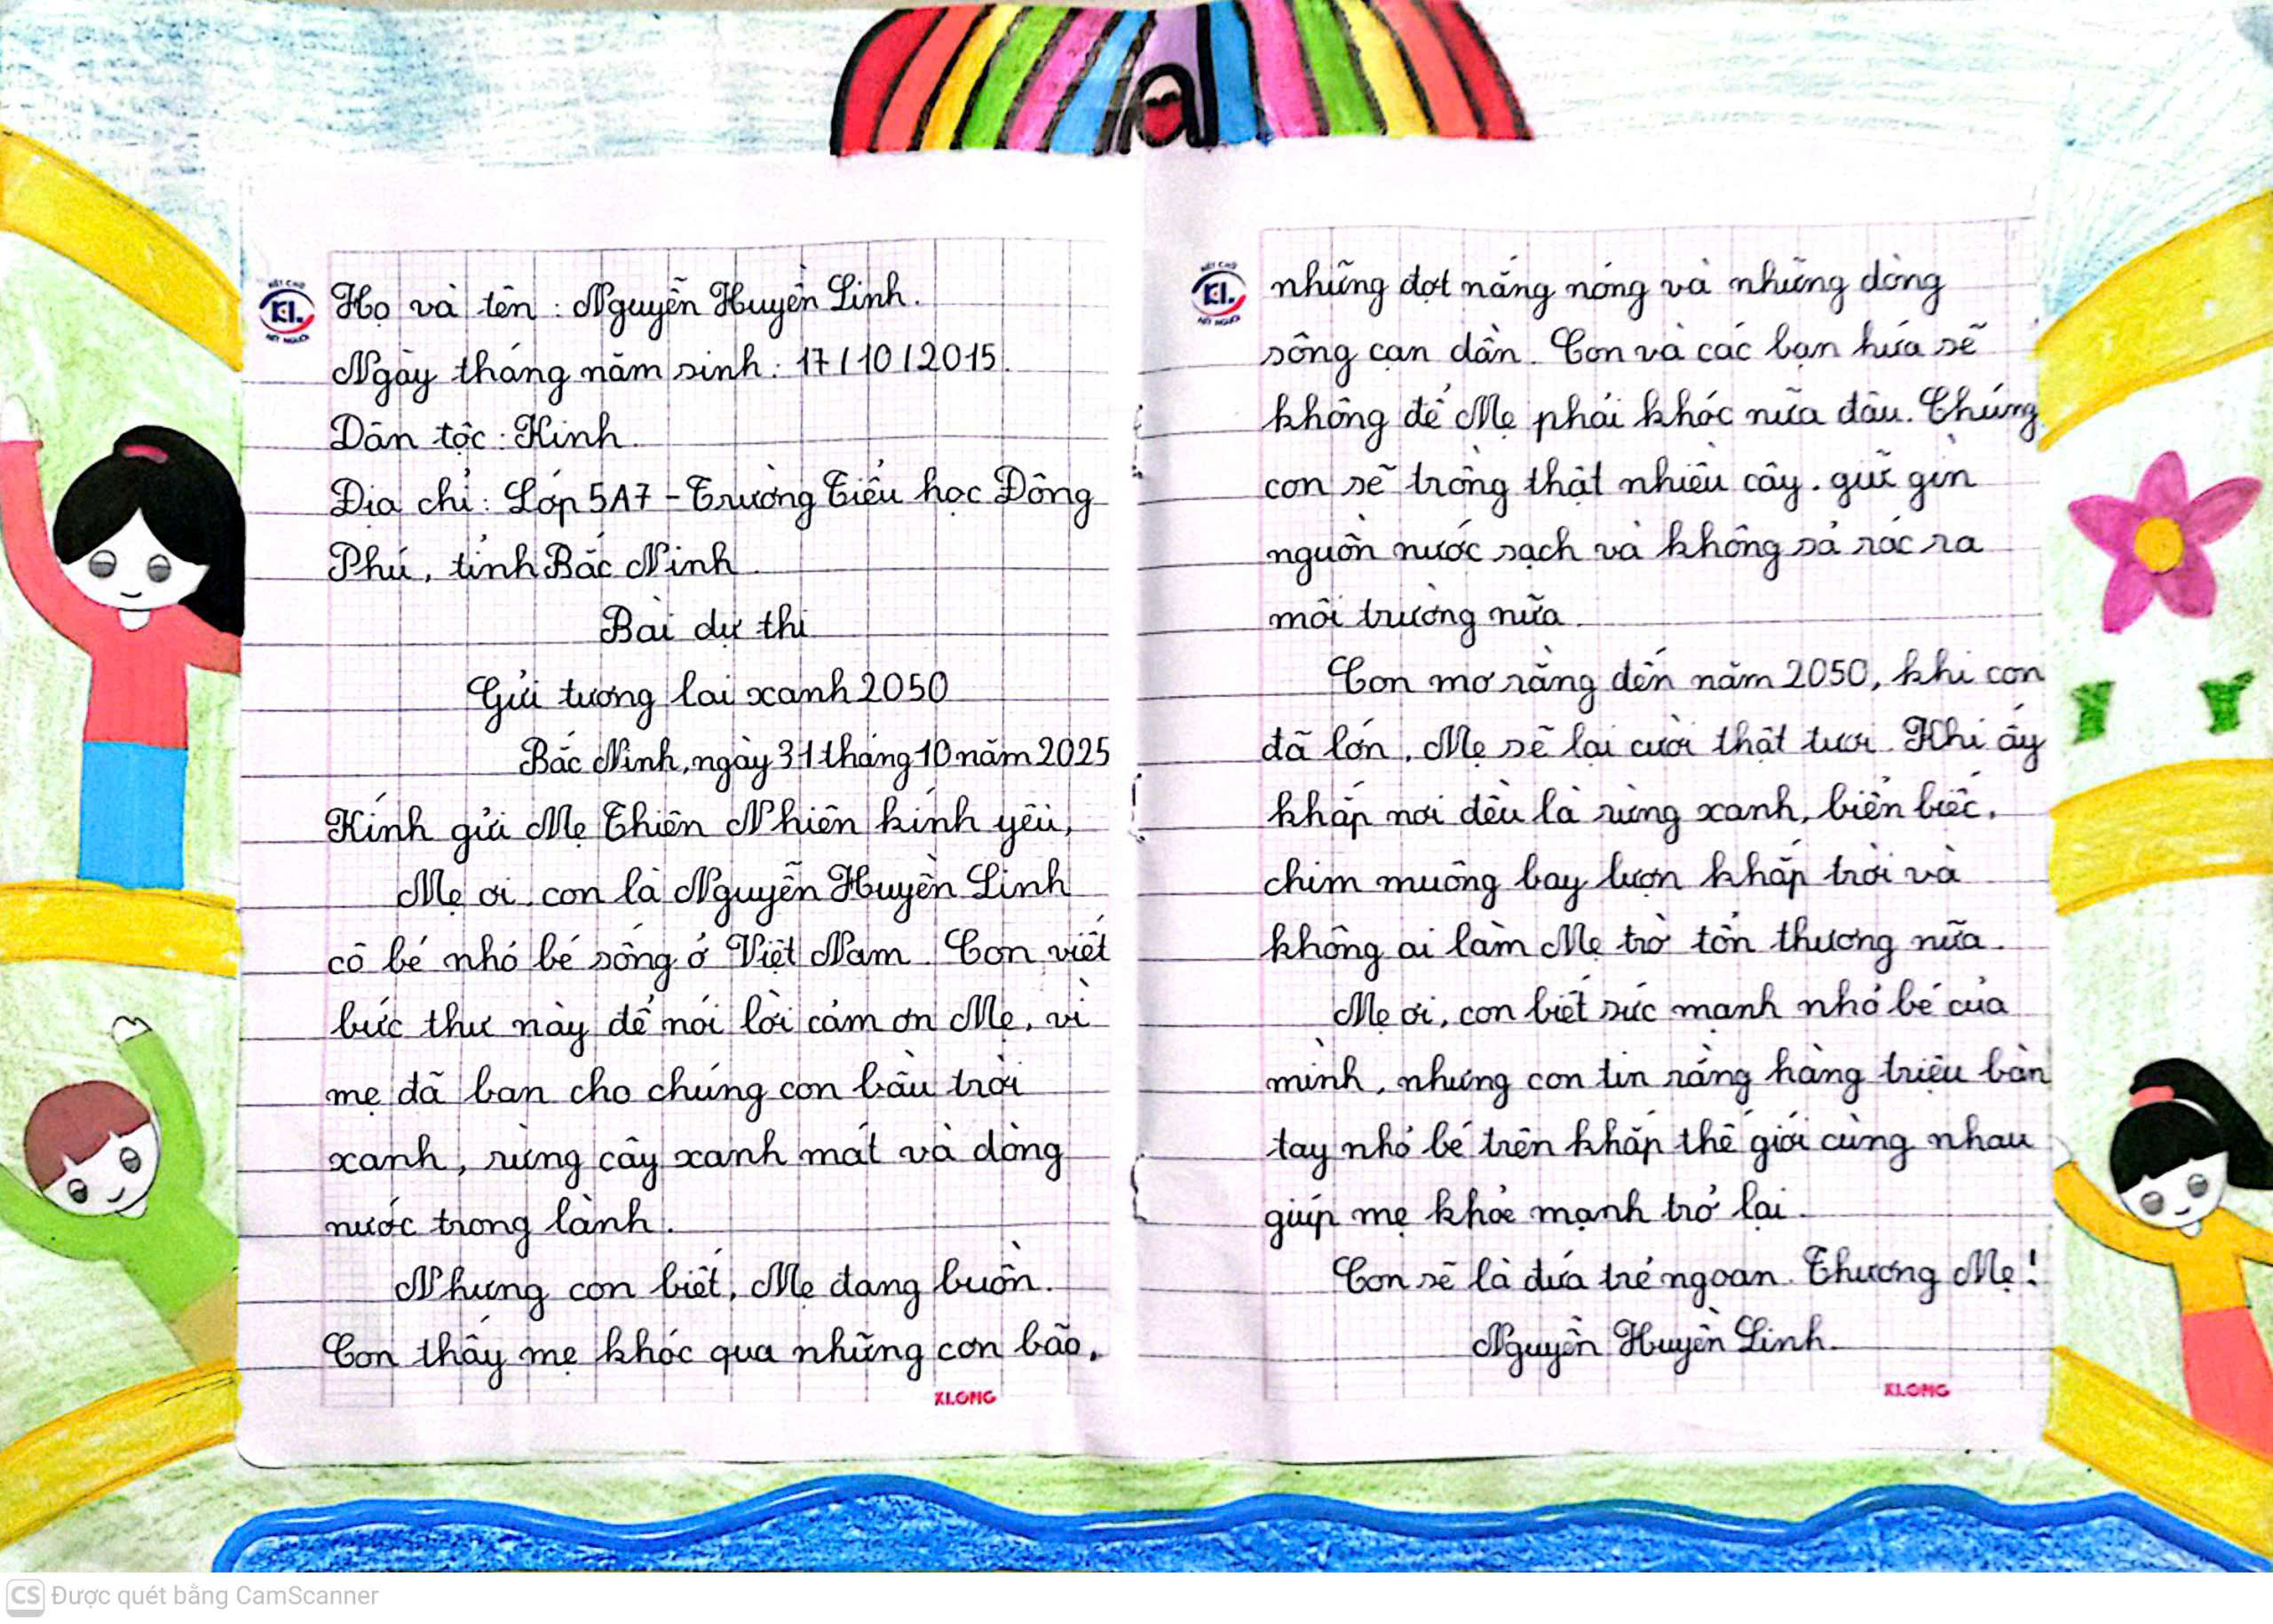 Họ và tên : Nguyễn Huyền Linh.
Ngày tháng năm sinh : 17/10/2015.
Dân tộc : Kinh.
Địa chỉ : Lớp 5A7 - Trường Tiểu học Đông
Phú, tỉnh Bắc Ninh.
Bài dự thi
Gửi tương lai xanh 2050
Bắc Ninh, ngày 31 tháng 10 năm 2025
Kính gửi Mẹ Thiên Nhiên kính yêu,
Mẹ ơi, con là Nguyễn Huyền Linh
cô bé nhỏ bé sống ở Việt Nam. Con viết
bức thư này để nói lời cảm ơn Mẹ, vì
mẹ đã ban cho chúng con bầu trời
xanh, rừng cây xanh mát và dòng
nước trong lành.
Nhưng con biết, Mẹ đang buồn.
Con thấy mẹ khóc qua những cơn bão,
XLONG
KL
NÉT CHỮ
NẾT NGƯỜI
những đợt nắng nóng và những dòng
sông cạn dần. Con và các bạn hứa sẽ
không để Mẹ phải khóc nữa đâu. Chúng
con sẽ trồng thật nhiều cây, giữ gìn
nguồn nước sạch và không sả rác ra
môi trường nữa.
Con mơ rằng đến năm 2050, khi con
đã lớn, Mẹ sẽ lại cười thật tươi. Khi ấy
khắp nơi đều là rừng xanh, biển biếc,
chim muông bay lượn khắp trời và
không ai làm Mẹ trở tổn thương nữa.
Mẹ ơi, con biết sức mạnh nhỏ bé của
mình, nhưng con tin rằng hàng triệu bàn
tay nhỏ bé trên khắp thế giới cùng nhau
giúp mẹ khỏe mạnh trở lại.
Con sẽ là đứa trẻ ngoan. Thương Mẹ!
Nguyễn Huyền Linh.
XLONG
KL
NÉT CHỮ
NẾT NGƯỜI
CS Được quét bằng CamScanner